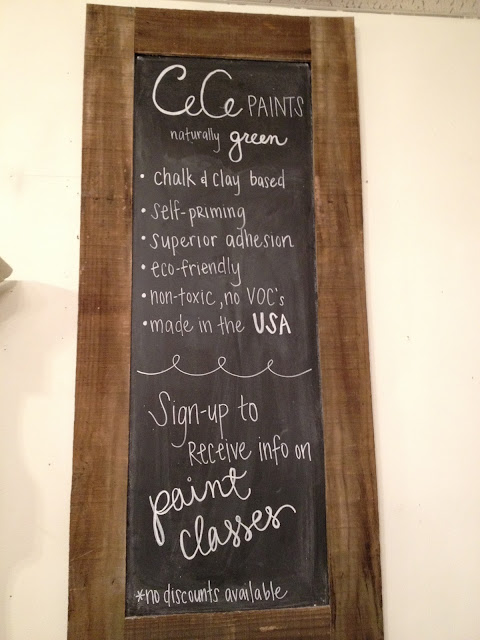 CeCe PAINTS
naturally green
• chalk & clay based
• self-priming
• superior adhesion
• eco-friendly
• non-toxic, no VOC's
• made in the USA
Sign-up to
Receive info on
paint
classes
*no discounts available